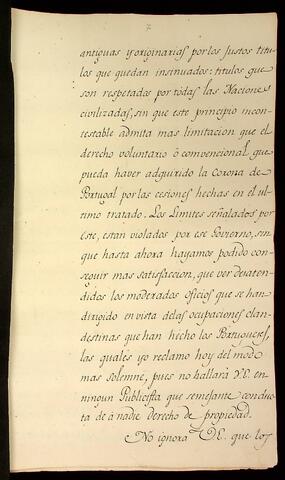 7
antiguas y originarias por los justos titu
los que quedan insinuados: titulos que
son respetados por todas las Nacione
civilizadas, sin que este principio incon
testable admita mas limitacion que el
derecho voluntario ó comvencional que
pueda haver adquirido la Corona de
Portugal por las cesiones hechas en el ul
timo tratado. Los Limites señalados por
éste, estan violados por ese Govierno, sin
que hasta ahora hayamos podido con-
seguir mas satisfaccion, que ver desaten-
didos los moderados oficios que se han
dirigido en vista de las ocupaciones clan-
destinas que han hecho los Portugueses,
las quales yo reclamo hoy del modo
mas solemne, pues no hallará V.E. en
ningun Publicista que semejante conducta
dé á nadie derecho de propiedad.
No ignora V.E. que los